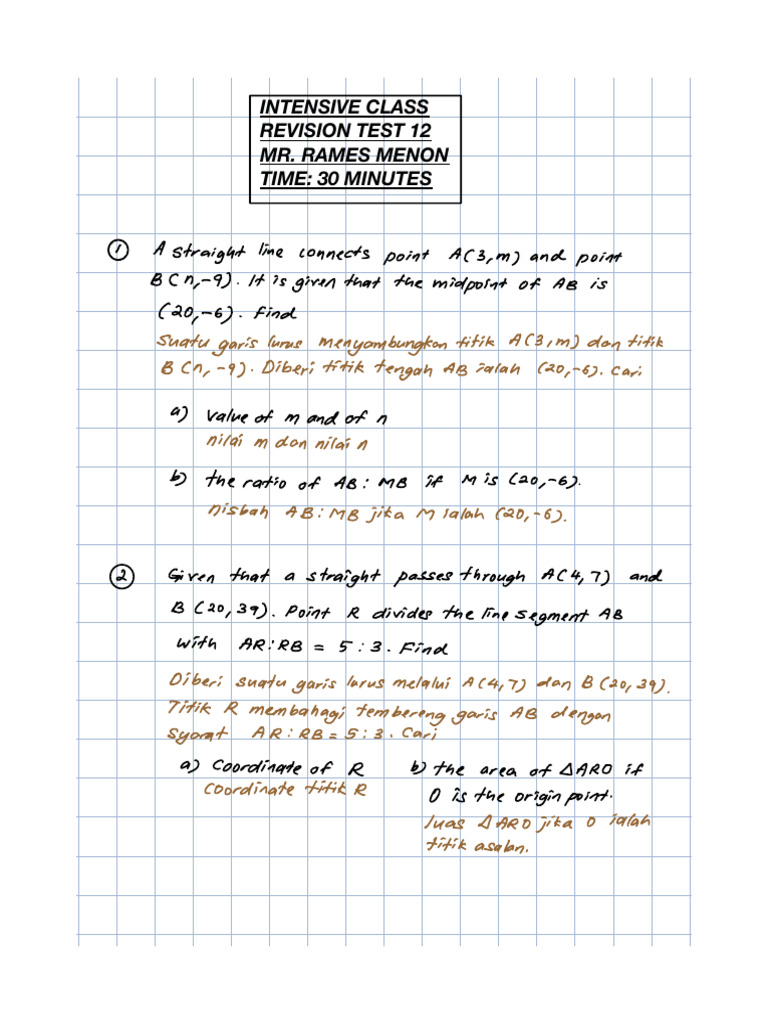 INTENSIVE CLASS
REVISION TEST 12
MR. RAMES MENON
TIME: 30 MINUTES
① A straight line connects point A(3,m) and point
B(n,-9). It is given that the midpoint of AB is
(20,-6). Find
Suatu garis lurus menyambungkan titik A(3,m) dan titik
B(n,-9). Diberi titik tengah AB ialah (20,-6). Cari
a) value of m and of n
nilai m dan nilai n
b) the ratio of AB: MB if M is (20,-6).
nisbah AB:MB jika M ialah (20,-6).
② Given that a straight passes through A(4,7) and
B(20,39). Point R divides the line segment AB
with AR:RB = 5:3. Find
Diberi suatu garis lurus melalui A(4,7) dan B(20,39).
Titik R membahagi tembereng garis AB dengan
syarat AR:RB=5:3. Cari
a) Coordinate of R
Coordinate titik R
b) the area of △ARO if
O is the origin point.
luas △ARO jika O ialah
titik asalan.